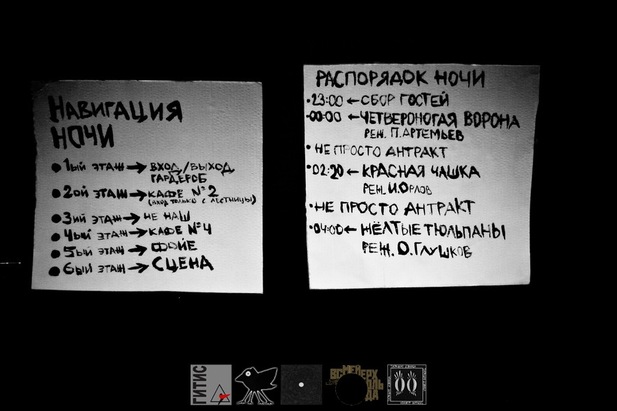 НАВИГАЦИЯ
НОЧИ
1ый ЭТАЖ → ВХОД/ВЫХОД
ГАРДЕРОБ
2ой ЭТАЖ → КАФЕ №2
(ВХОД ТОЛЬКО С ЛЕСТНИЦЫ)
3ий ЭТАЖ → НЕ НАШ
4ый ЭТАЖ → КАФЕ №4
5ый ЭТАЖ → ФОЙЕ
6ый ЭТАЖ → СЦЕНА
РАСПОРЯДОК НОЧИ
23:00 ← СБОР ГОСТЕЙ
00:00 ← ЧЕТВЕРОНОГАЯ ВОРОНА
РЕЖ. П.АРТЕМЬЕВ
НЕ ПРОСТО АНТРАКТ
02:20 ← КРАСНАЯ ЧАШКА
РЕЖ. И.ОРЛОВ
НЕ ПРОСТО АНТРАКТ
04:00 ← ЖЁЛТЫЕ ТЮЛЬПАНЫ
РЕЖ. О.ГЛУШКОВ
ГИТИС